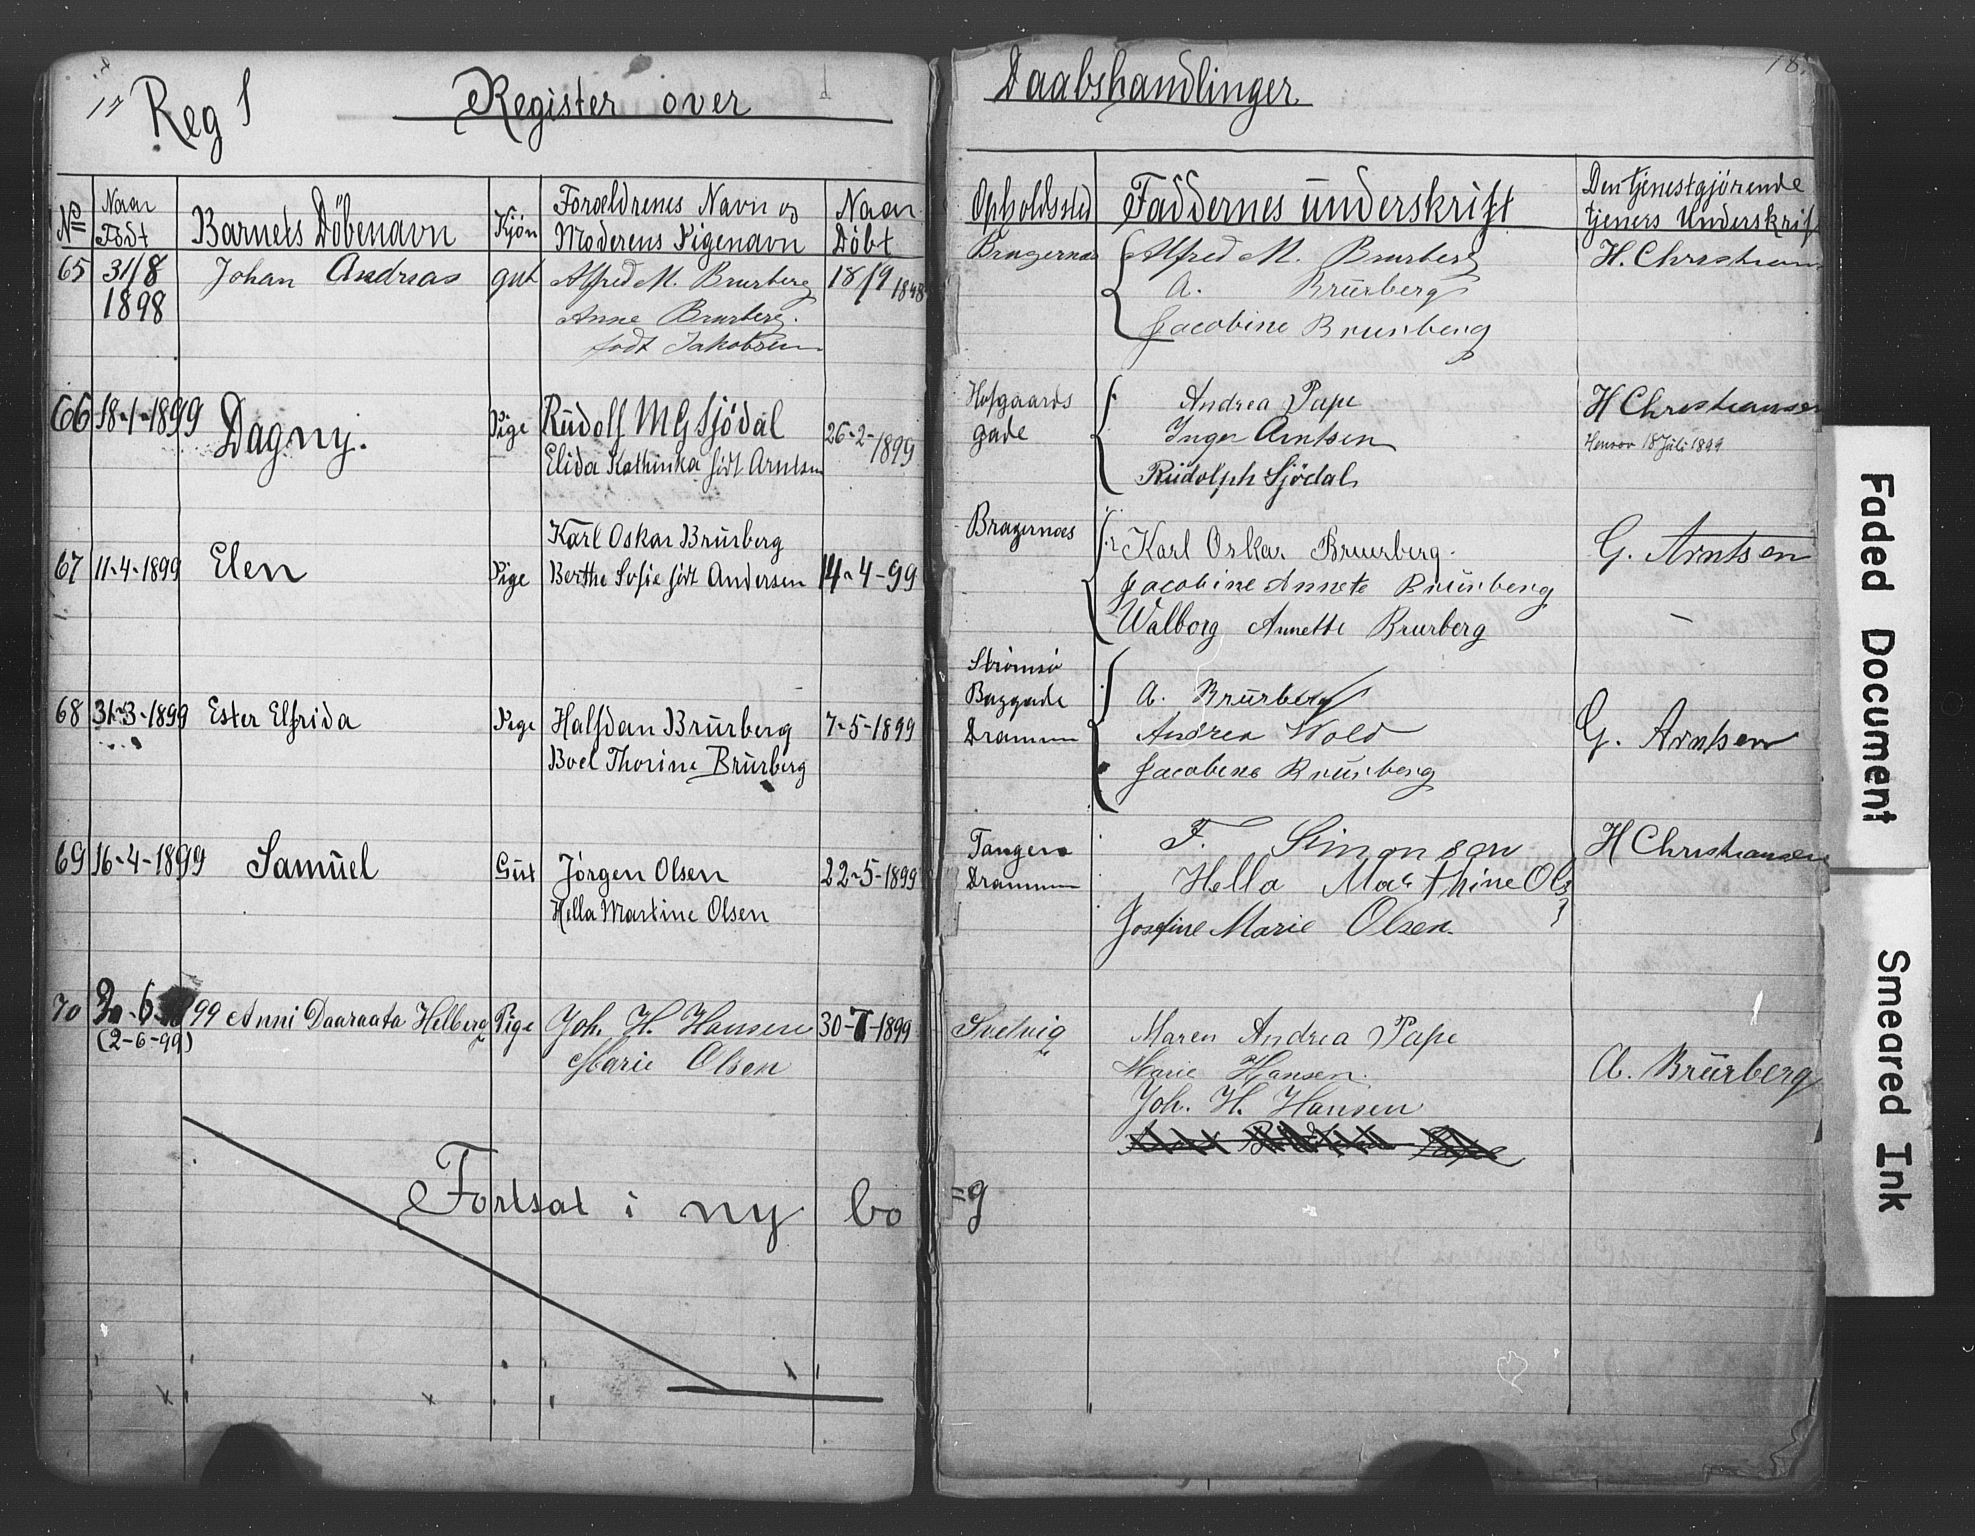 Reg 1
Register over
No
Naar
Født
Barnets Döbenavn
Kjön
Forældrenes Navn og
Moderens Pigenavn
Naar
Döbt
65
31/8
1898
Johan Andreas
gut
Alfred M. Brurberg
Anne Brurberg.
født Jakobsen
18/9 1898
66
18-1-1899
Dagny.
Pige
Rudolf M G Sjödal
Elida Kathinka født Arntsen
26-2-1899
67
11-4-1899
Elen
Pige
Karl Oskar Brürberg
Berthe Sofie født Andersen
14-4-99
68
31-3-1899
Ester Elfrida
Pige
Halfdan Brürberg
Boel Thorine Brürberg
7-5-1899
69
16-4-1899
Samüel
Güt
Jørgen Olsen
Hella Martine Olsen
22-5-1899
70
(2-6-99)
Anni Daaraata Helberg
Pige
Joh. H. Hansen
Marie Olsen
30-7-1899
Fortsat i ny bo
18.
Daabshandlinger
Opholdssted
Faddernes ünderskrift
Den tjenestgjörende
tjeners Underskrift
Bragernæs
Alfred M. Brurberg
A. Brürberg
Jacobine Brurberg
H. Christian
Hofgaards
gade
Andrea Pape
Inger Arntsen
Rüdolph Sjödal
H Christiansen
18 Juli 1899
Bragernæs
Karl Oskar Bruurberg.
Jacobine Annete Brürberg
Walborg Annette Brurberg
G. Arntsen
Strömsø
Buggade
Drammen
A. Brürberg
Andrea Wold
Jacobine Brürberg
G. Arntsen
Tangen
Drammen
F. Simonson
Hella Mathine Ols
Josefine Marie Olsen.
H Christiansen
Svelvig
Maren Andrea Pape
Marie Hansen.
Joh. H. Hansen
A. Brürberg
=g
Faded Document
Smeared Ink